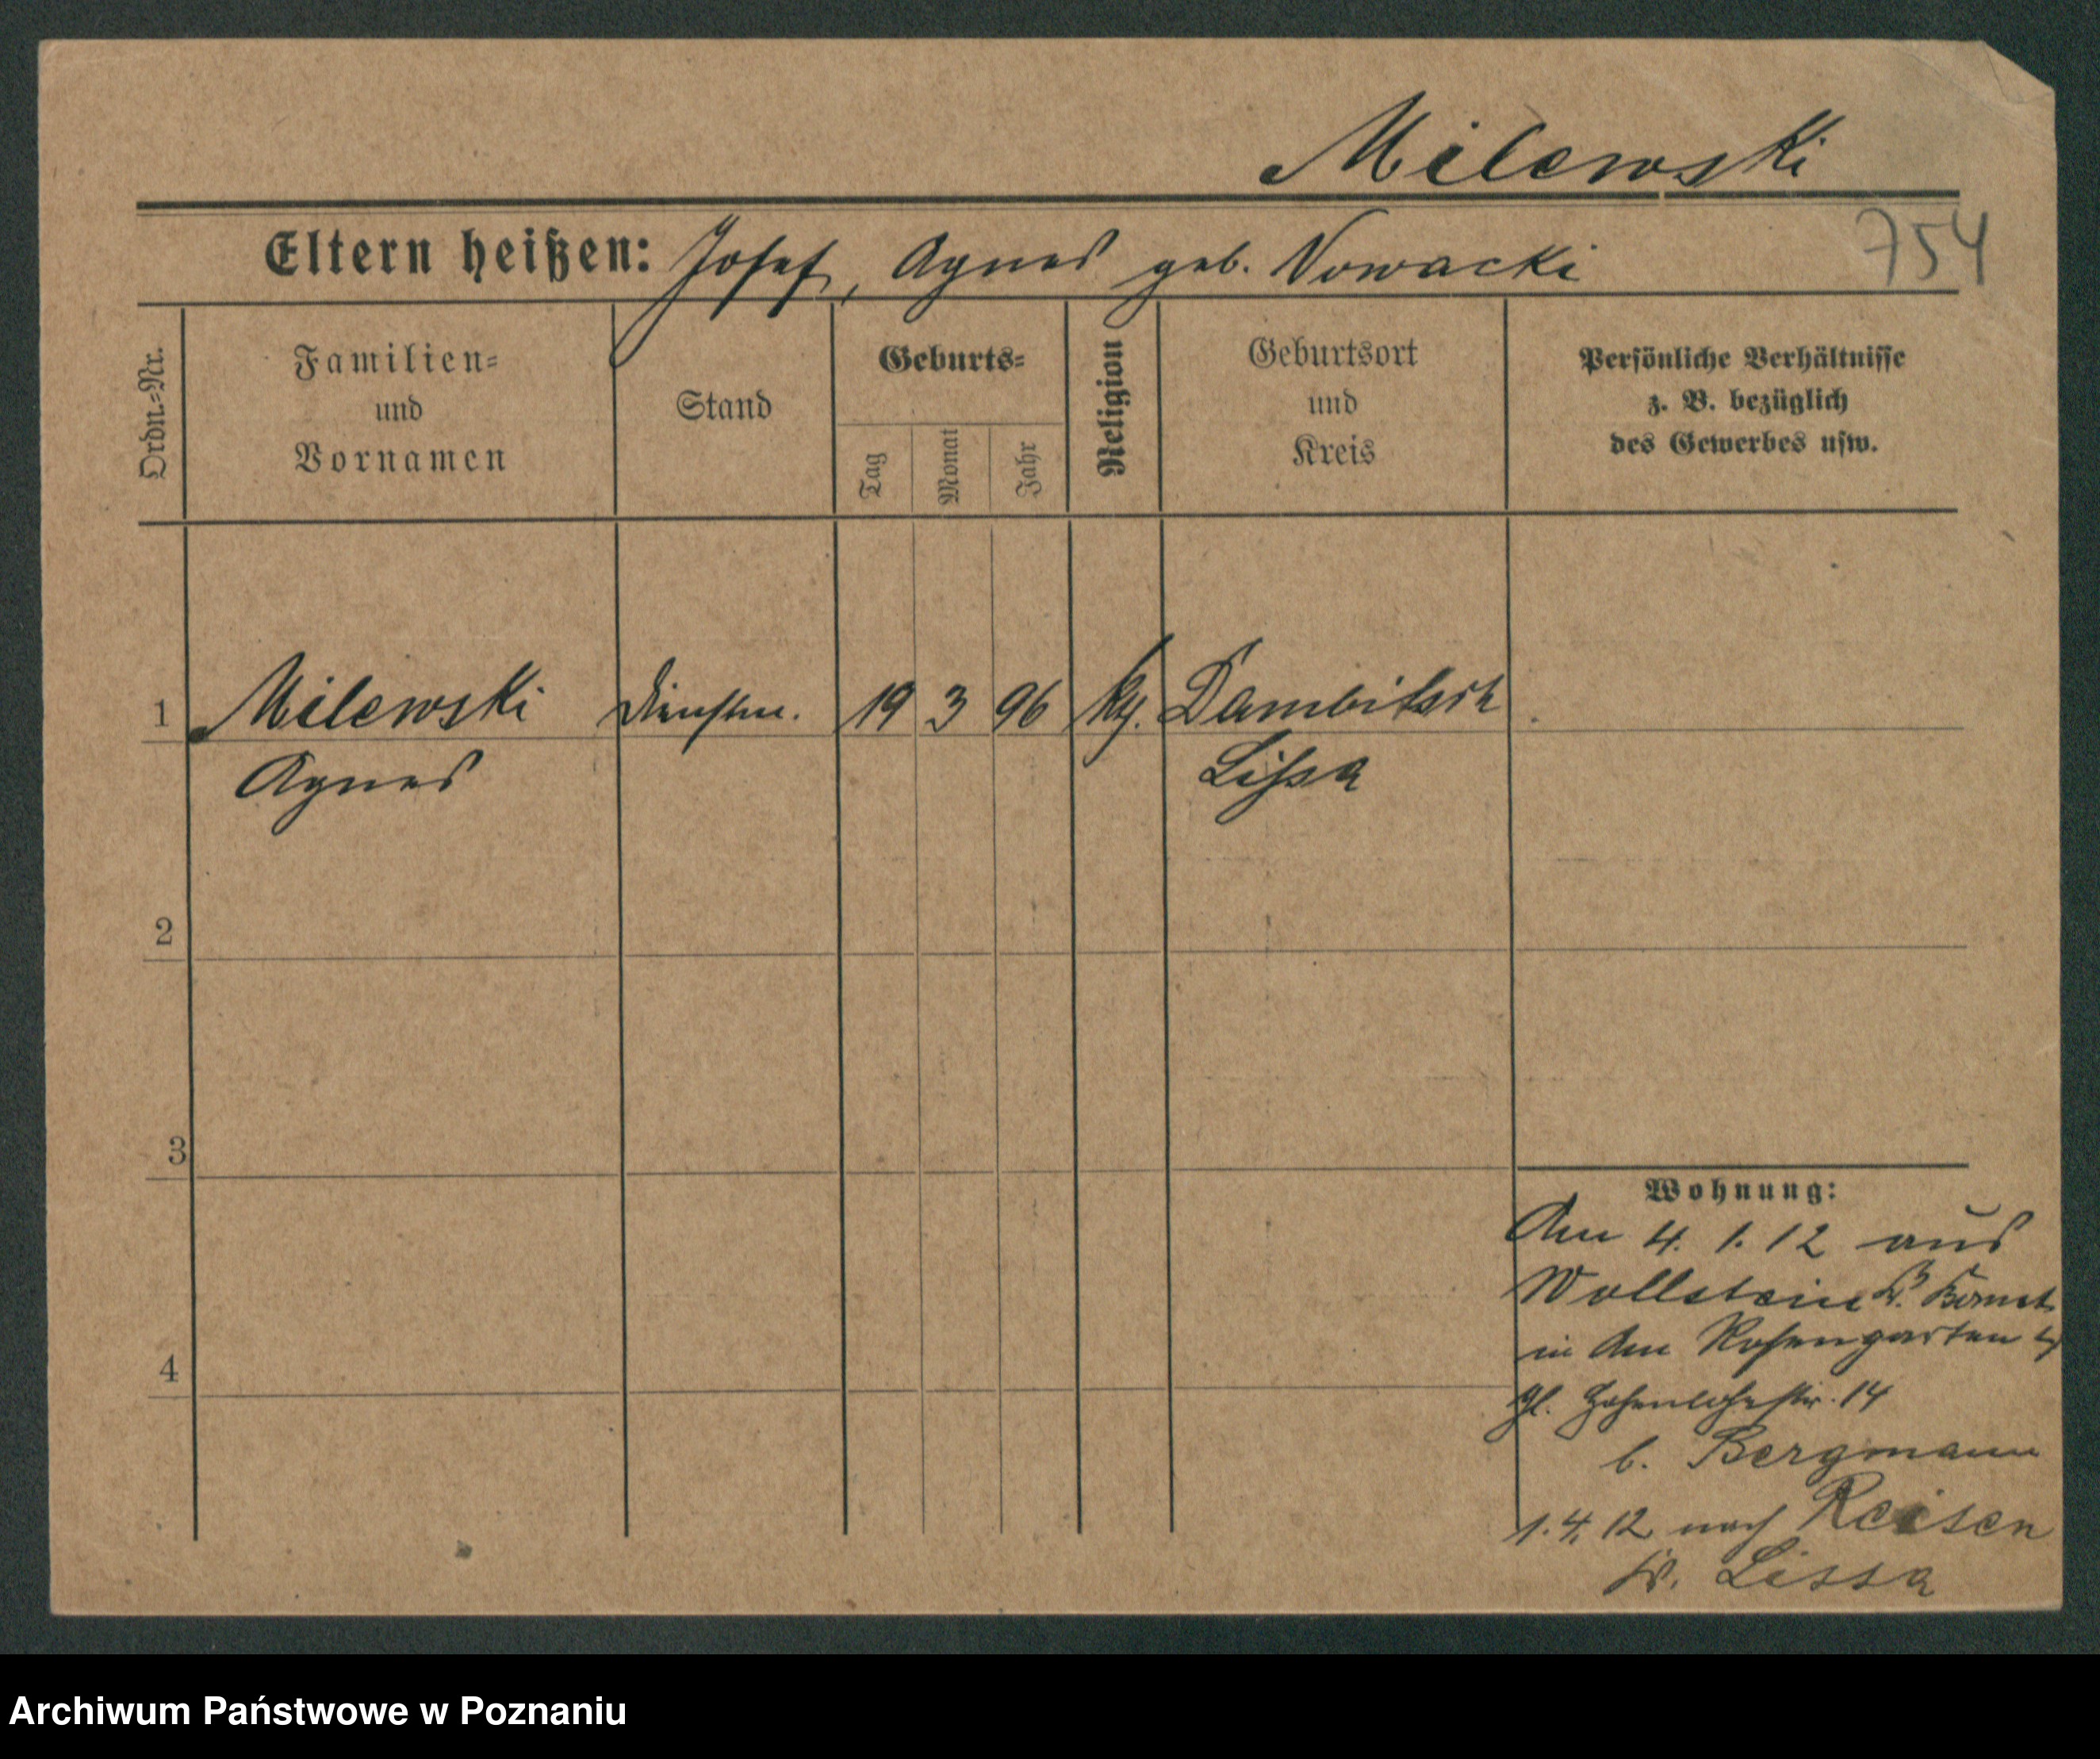 Milewski
Eltern heißen: Josef, Agnes geb. Nowacki
754
Ordn.=Nr.
Familien=
und
Vornamen
Stand
Geburts=
Tag
Monat
Jahr
Religion
Geburtsort
und
Kreis
Persönliche Verhältnisse
z. B. bezüglich
des Gewerbes usw.
1 Milewski Dienstm. 19 3 96 kth. Dambitsch
Agnes Lissa
2
3
4
Wohnung:
Am 4. 1. 12 aus
Wollstein Kr. Bomst
in Am Rosengarten
Gl. Hohenlohestr. 14
b. Bergmann
1. 4. 12 nach Reisen
Kr. Lissa
Archiwum Państwowe w Poznaniu